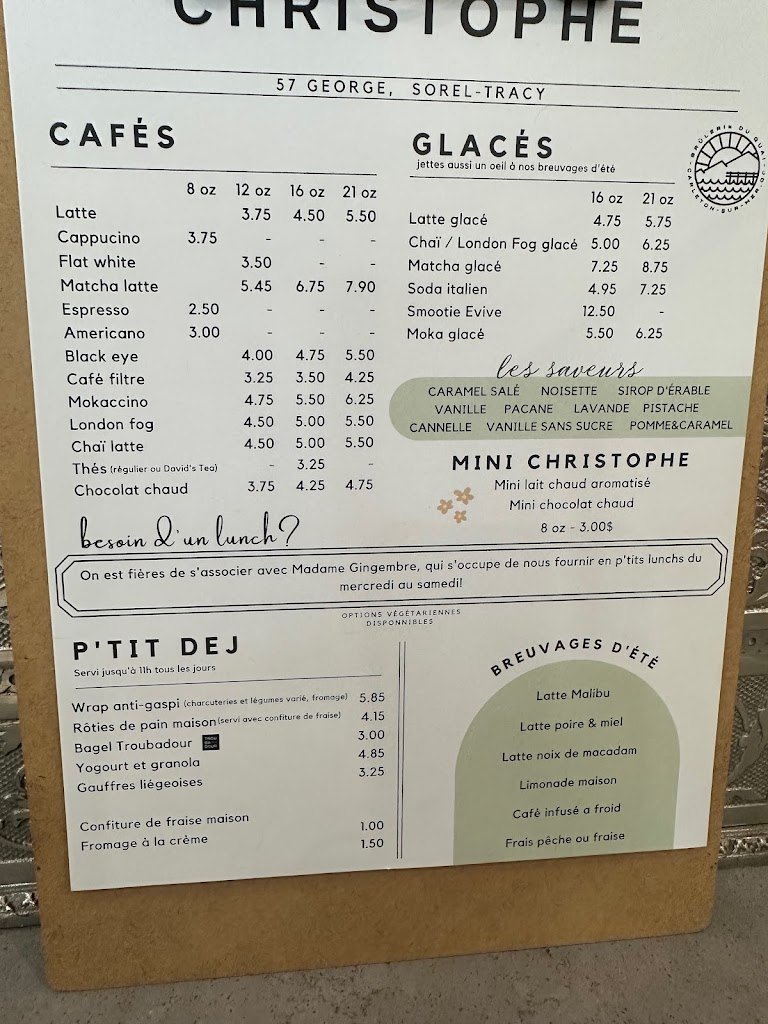 CHRISTOPHE
57 GEORGE, SOREL-TRACY
CAFÉS
8 oz 12 oz 16 oz 21 oz
Latte 3.75 4.50 5.50
Cappucino 3.75 - - -
Flat white 3.50 - -
Matcha latte 5.45 6.75 7.90
Espresso 2.50 - - -
Americano 3.00 - - -
Black eye 4.00 4.75 5.50
Café filtre 3.25 3.50 4.25
Mokaccino 4.75 5.50 6.25
London fog 4.50 5.00 5.50
Chaï latte 4.50 5.00 5.50
Thés (régulier ou David's Tea) - 3.25 -
Chocolat chaud 3.75 4.25 4.75
GLACÉS
jettes aussi un oeil à nos breuvages d'été
16 oz 21 oz
Latte glacé 4.75 5.75
Chaï / London Fog glacé 5.00 6.25
Matcha glacé 7.25 8.75
Soda italien 4.95 7.25
Smootie Evive 12.50 -
Moka glacé 5.50 6.25
BRÛLERIE DU QUAI CO.
CARLETON-SUR-MER
les saveurs
CARAMEL SALÉ NOISETTE SIROP D'ÉRABLE
VANILLE PACANE LAVANDE PISTACHE
CANNELLE VANILLE SANS SUCRE POMME&CARAMEL
MINI CHRISTOPHE
Mini lait chaud aromatisé
Mini chocolat chaud
8 oz - 3.00$
besoin d'un lunch?
On est fières de s'associer avec Madame Gingembre, qui s'occupe de nous fournir en p'tits lunchs du
mercredi au samedi!
OPTIONS VÉGÉTARIENNES
DISPONNIBLES
P'TIT DEJ
Servi jusqu'à 11h tous les jours
Wrap anti-gaspi (charcuteries et légumes varié, fromage) 5.85
Rôties de pain maison (servi avec confiture de fraise) 4.15
Bagel Troubadour 3.00
Yogourt et granola 4.85
Gauffres liégeoises 3.25
Confiture de fraise maison 1.00
Fromage à la crème 1.50
BREUVAGES D'ÉTÉ
Latte Malibu
Latte poire & miel
Latte noix de macadam
Limonade maison
Café infusé a froid
Frais pêche ou fraise